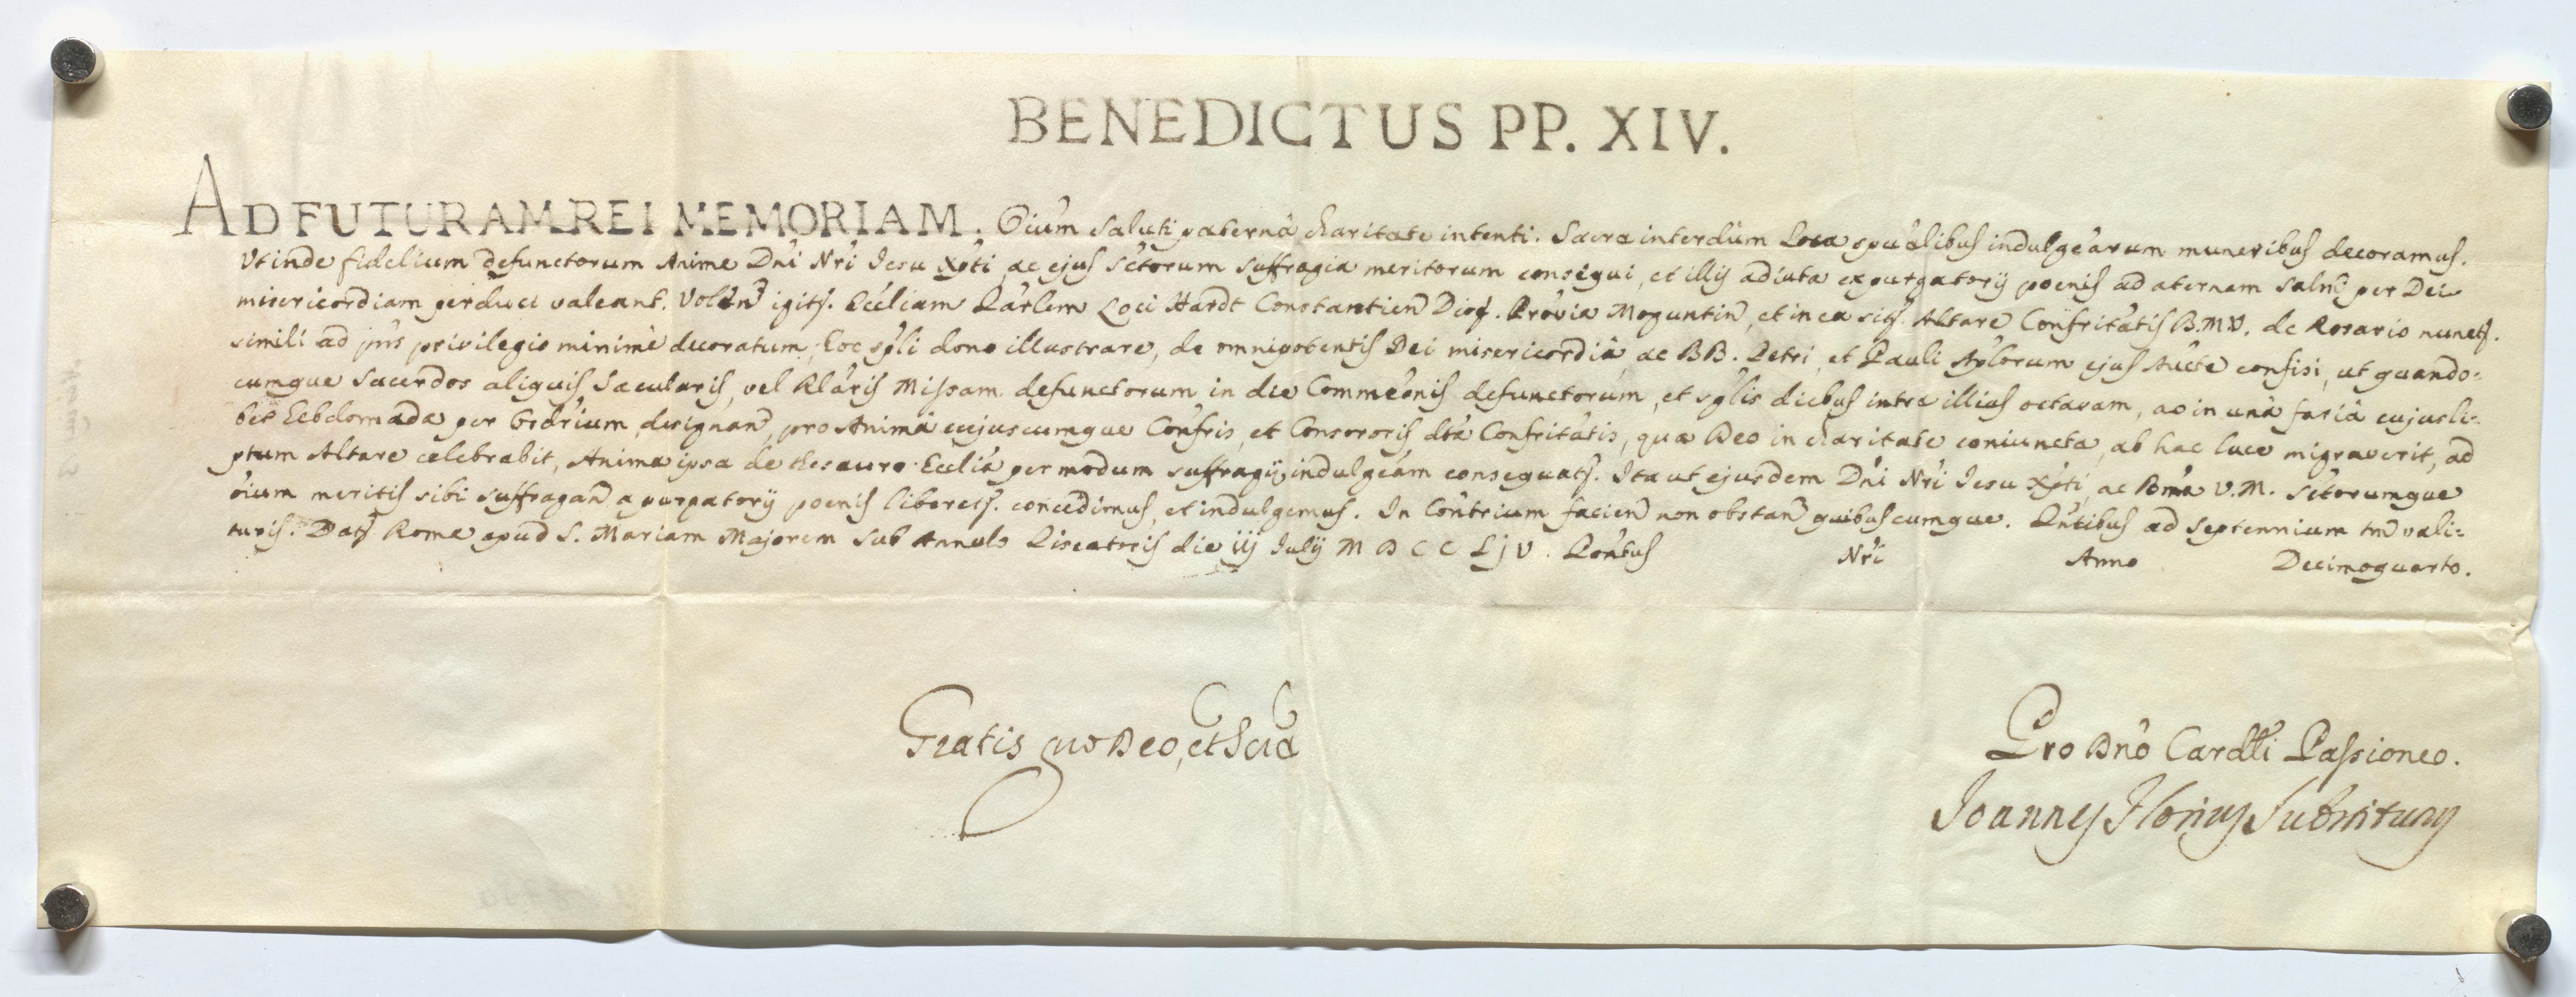 BENEDICTUS PP. XIV.
AD FUTURAM REI MEMORIAM. Oium saluti paterna charitate intenti. Sacra interdum Loca spualibus indulgearum muneribus decoramus.
Ut inde fidelium defunctorum Anime Dni Nri Iesu Xpti, ac ejus sctorum suffragia meritorum consequi, et illis adiuta ex purgatorij poenis ad aternam salm per Dei
misericordiam perduci valeant. Volen igit. Eccliam Parlem Loci Hardt Constantien Dioc. Provia Moguntin, et in ea sit. Altare Confritatis B.M.V. de Rosario nunct.
simili ad pns privilegio minime decoratum, hoc spli dono illustrare, de omnipotentis Dei misericordia, ac BB. Petri, et Pauli Aplorum ejus Aucte confisi, ut quando=
cumque sacerdos aliquis sacularis, vel Rlaris Missam defunctorum in die Commeonis defunctorum, et sglis diebus intra illius octavam, ac in una feria cujusli=
bet hebdomada per Ordrium designan, pro Anima cujuscumque Confris, et Consororis dta Confritatis, qua Deo in charitate coniuncta, ab hac luce migraverit, ad
ptum Altare celebrabit, Anima ipsa de thesauro Ecclia per modum suffragij indulgeam consequat. Ita ut ejusdem Dni Nri Iesu Xpti, ac Bma V.M. sctorumque
oium meritis sibi suffragan a purgatorij poenis liberet. concedimus, et indulgemus. In Contrium facien non obstan quibuscumque. Pntibus ad septennium tm vali=
turis. Dat Rome apud S. Mariam Majorem sub Annulo Piscatoris die iij Julij M D C C L j V. Pontus Nri Anno Decimoquarto.
Gratis pro Deo, et Scra
Pro Dno Cardli Passioneo.
Joannes Florius Substitutus